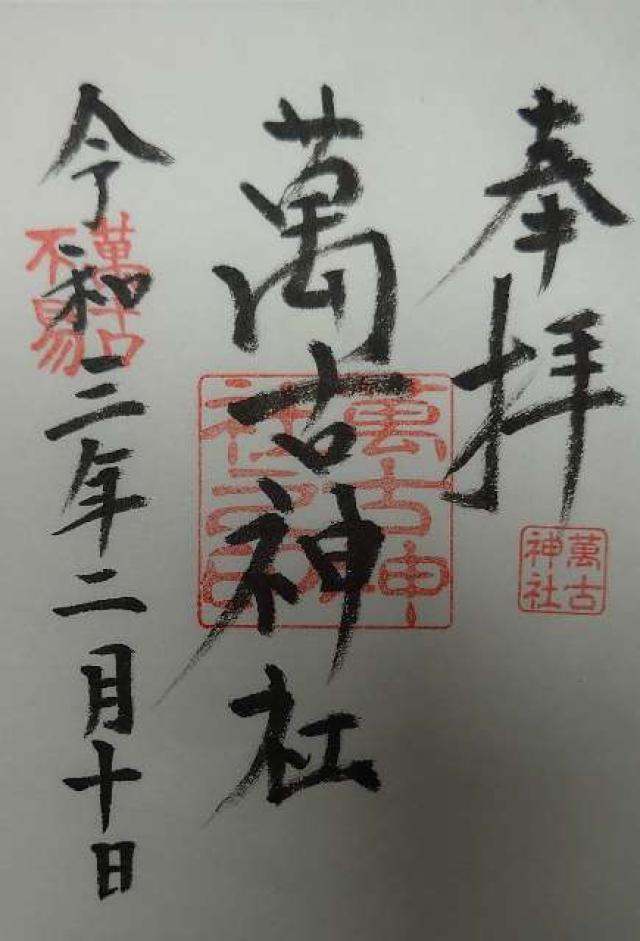 奉拝
萬古
神社
萬古神社
萬古神
社之印
令和二年二月十日
萬古
不易